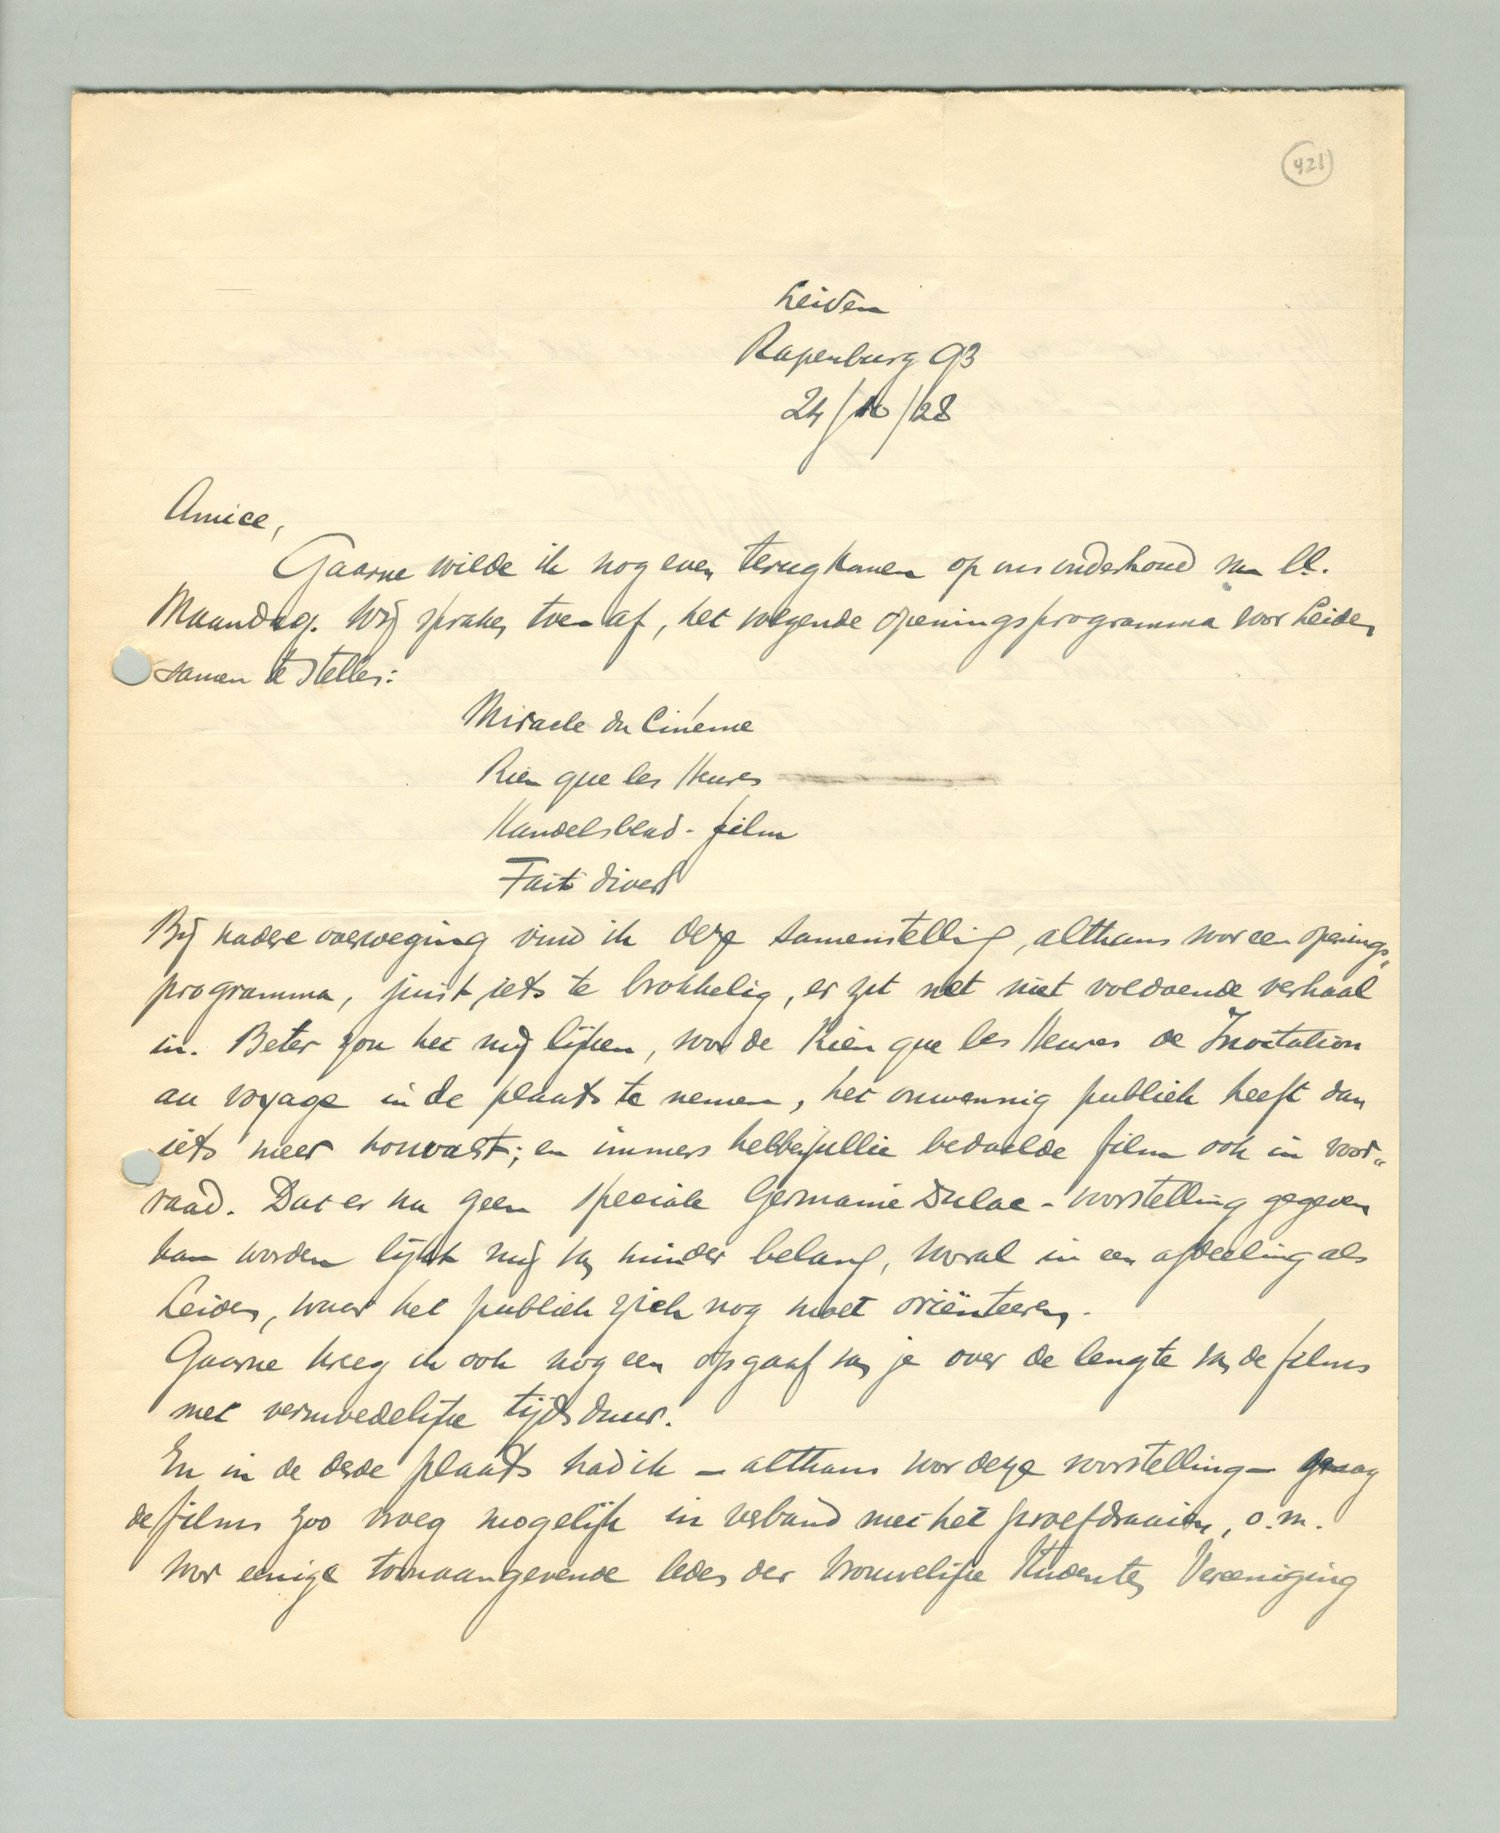 421
Leiden
Rapenburg 93
24/10/28
Amice,
Gaarne wilde ik nog even terugkomen op ons onderhoud van ll.
Maandag. Wij spraken toen af, het volgende openingsprogramma voor Leiden
samen te stellen:
Miracle du Cinéme
Rien que les Heures
Handelsblad-film
Fait divers
Bij nadere overweging vind ik deze samenstelling, althans voor een openings„
programma, juist iets te brokkelig, er zit net niet voldoende verhaal
in. Beter zou het mij lijken, voor de Rien que les Heures de Invitation
au voyage in de plaats te nemen, het onwennig publiek heeft dan
iets meer houvast; en immers hebben jullie bedoelde film ook in voor„
raad. Dat er nu geen speciale Germaine Dulac-voorstelling gegeven
kan worden lijkt mij van minder belang, vooral in een afdeeling als
Leiden, waar het publiek zich nog moet oriënteeren.
Gaarne kreeg ik ook nog een opgaaf van je over de lengte van de films
met vermoedelijke tijdsduur.
En in de derde plaats had ik – althans voor deze voorstelling – graag
de films zoo vroeg mogelijk in verband met het proefdraaien, o.m.
voor eenige toonaangevende leden der Vrouwelijke Studenten Vereeniging